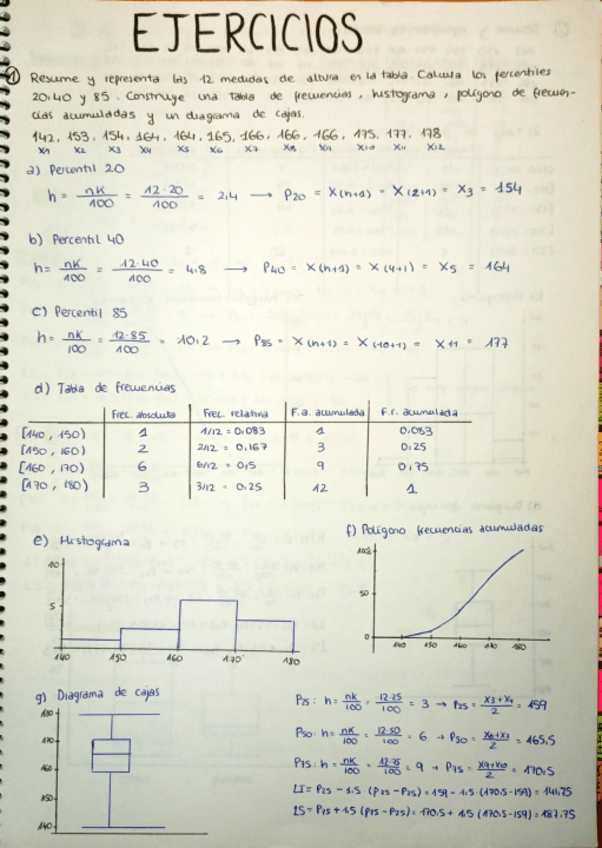 EJERCICIOS
1 Resume y representa las 12 medidas de altura en la tabla. Calcula los percentiles
20, 40 y 85. Construye una tabla de frecuencias, histograma, polígono de frecuen-
cias acumuladas y un diagrama de cajas.
142, 153, 154, 164, 164, 165, 166, 166, 166, 175, 177, 178
X1 X2 X3 X4 X5 X6 X7 X8 X9 X10 X11 X12
a) Percentil 20
h = nK/100 = 12·20/100 = 2,4 → P20 = X(h+1) = X(2+1) = X3 = 154
b) Percentil 40
h = nK/100 = 12·40/100 = 4.8 → P40 = X(h+1) = X(4+1) = X5 = 164
c) Percentil 85
h = nK/100 = 12·85/100 = 10,2 → P85 = X(h+1) = X(10+1) = X11 = 177
d) Tabla de frecuencias
Frec. absoluta Frec. relativa F.a. acumulada F.r. acumulada
[140, 150) 1 1/12 = 0,083 1 0,083
[150, 160) 2 2/12 = 0,167 3 0,25
[160, 170) 6 6/12 = 0,5 9 0,75
[170, 180) 3 3/12 = 0,25 12 1
e) Histograma
10
5
140 150 160 170 180
f) Polígono frecuencias acumuladas
100
50
0
140 150 160 170 180
g) Diagrama de cajas
180
170
160
150
140
P25: h = nK/100 = 12·25/100 = 3 → P25 = X3+X4/2 = 159
P50: h = nK/100 = 12·50/100 = 6 → P50 = X6+X7/2 = 165,5
P75: h = nK/100 = 12·75/100 = 9 → P75 = X9+X10/2 = 170,5
LI = P25 - 1.5 (P75 - P25) = 159 - 1.5 (170,5 - 159) = 141,75
LS = P75 + 1,5 (P75 - P25) = 170,5 + 1,5 (170,5 - 159) = 187,75